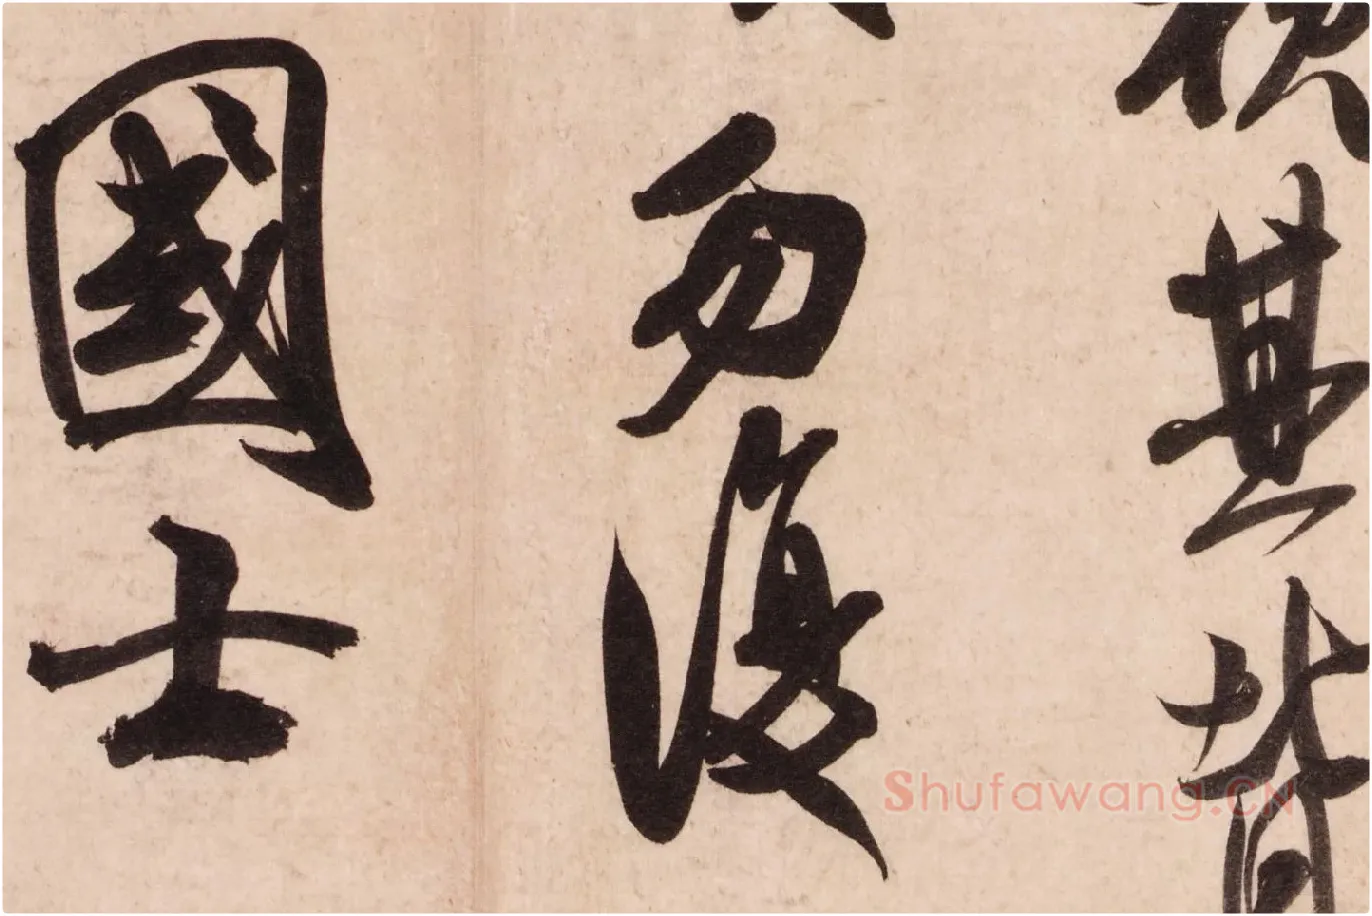 其背
勿復
國士
Shufawang.CN